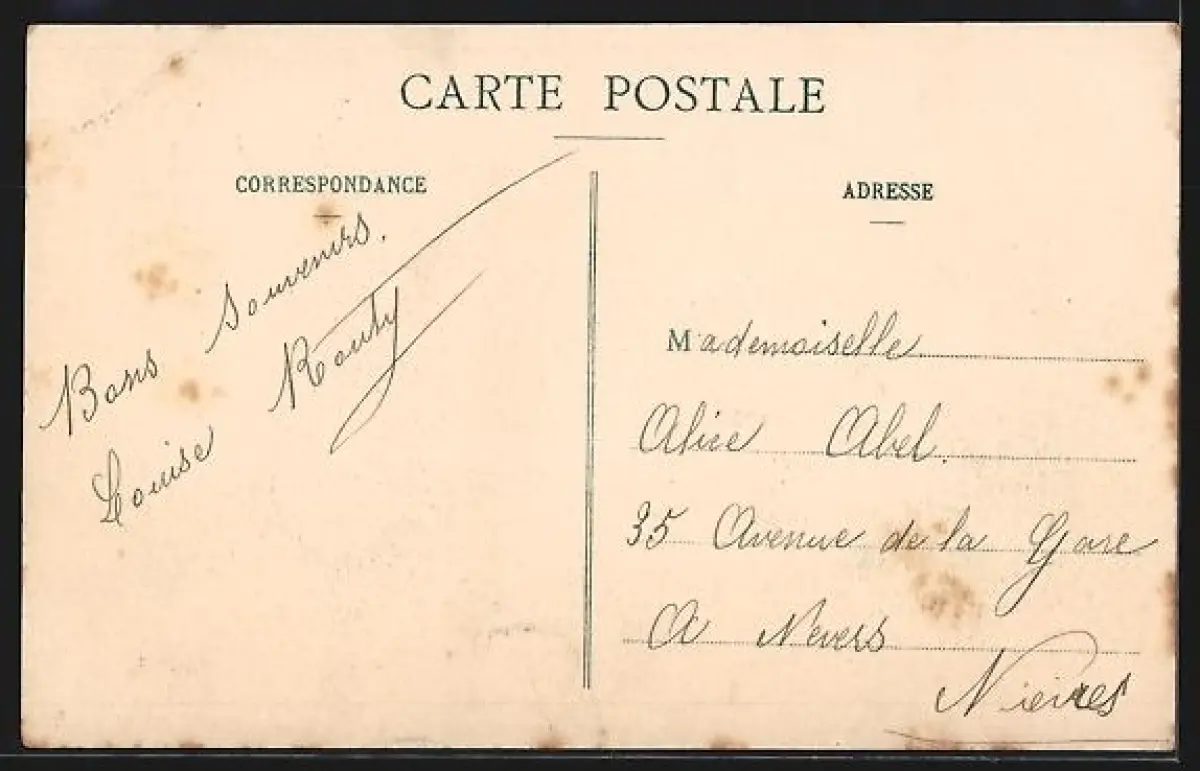 CARTE POSTALE
CORRESPONDANCE
Bons Souvenirs.
Louise Routy
ADRESSE
Mademoiselle
Alice Abel.
35 Avenue de la Gare
A Nevers
Nièvres